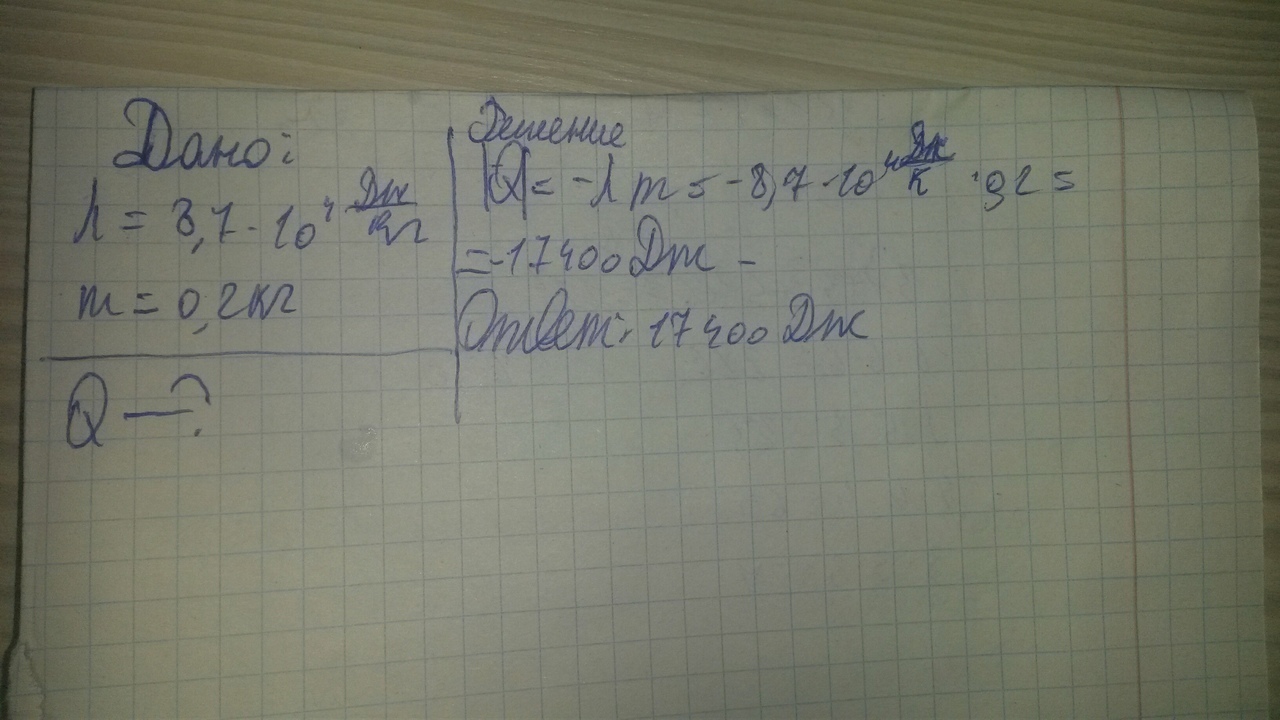 Дано:
λ = 8,7 · 10⁴ Дж/кг
m = 0,2 кг
Q — ?
Решение
|Q| = -λ m = -8,7 · 10⁴ Дж/К · 0,2 =
= -17400 Дж -
Ответ: 17400 Дж